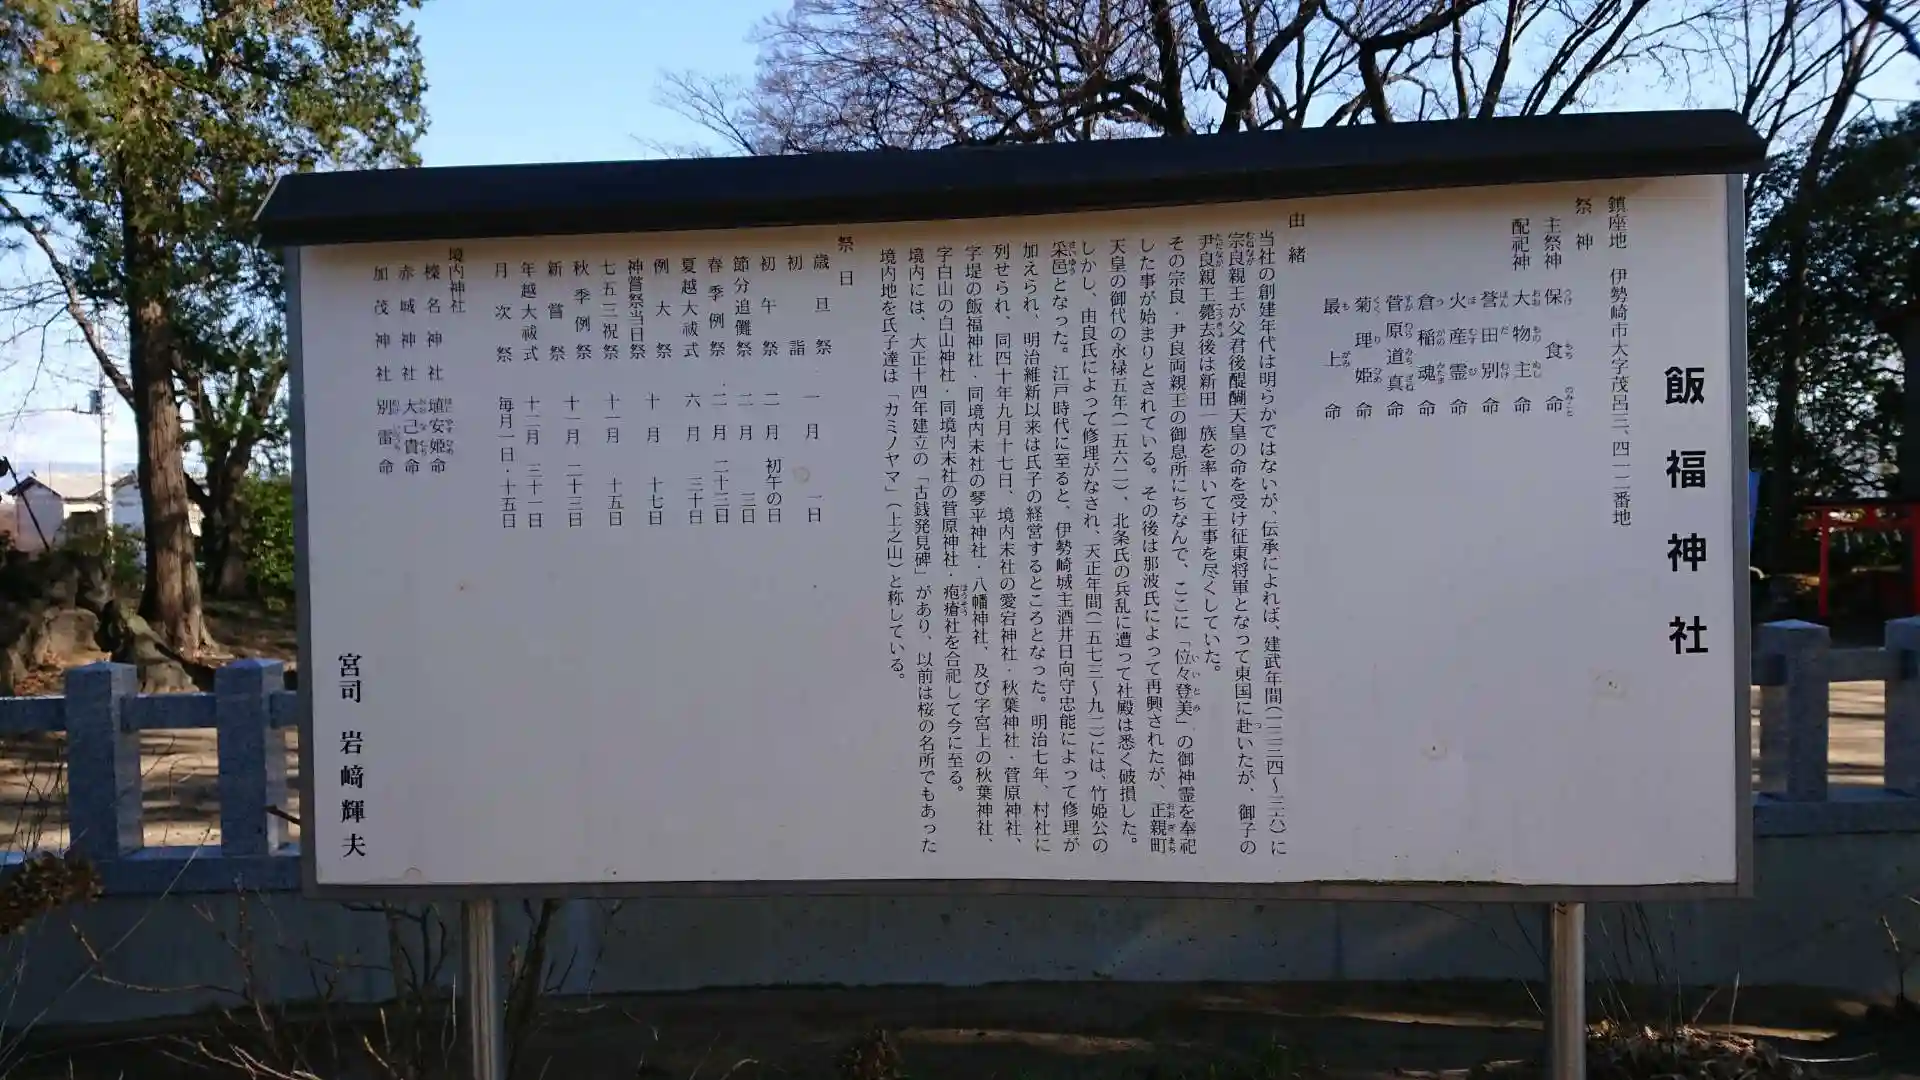 飯福神社
鎮座地 伊勢崎市大字茂呂三、四一二番地
祭神
主祭神 保食命
配祀神 大物主命
誉田別命
火産霊命
倉稲魂命
菅原道真命
菊理姫命
最上命
由緒
当社の創建年代は明らかではないが、伝承によれば、建武年間(一三三四〜三六)に
宗良親王が父君後醍醐天皇の命を受け征東将軍となって東国に赴いたが、御子の
尹良親王薨去後は新田一族を率いて王事を尽くしていた。
その宗良・尹良両親王の御息所にちなんで、ここに「位々登美」の御神霊を奉祀
した事が始まりとされている。その後は那波氏によって再興されたが、正親町
天皇の御代の永禄五年(一五六二)、北条氏の兵乱に遭って社殿は悉く破損した。
しかし、由良氏によって修理がなされ、天正年間(一五七三〜九二)には、竹姫公の
采邑となった。江戸時代に至ると、伊勢崎城主酒井日向守忠能によって修理が
加えられ、明治維新以来は氏子の経営するところとなった。明治七年、村社に
列せられ、同四十年九月十七日、境内末社の愛宕神社・秋葉神社・菅原神社、
字堤の飯福神社・同境内末社の琴平神社・八幡神社、及び字宮上の秋葉神社、
字白山の白山神社・同境内末社の菅原神社・疱瘡社を合祀して今に至る。
境内には、大正十四年建立の「古銭発見碑」があり、以前は桜の名所でもあった
境内地を氏子達は「カミノヤマ」(上之山)と称している。
祭日
歳旦祭 一月 一日
初詣
初午祭 二月 初午の日
節分追儺祭 二月 三日
春季例祭 二月 二十三日
夏越大祓式 六月 三十日
例大祭 十月 十七日
神嘗祭当日祭
七五三祝祭 十一月 十五日
秋季例祭 十一月 二十三日
新嘗祭
年越大祓式 十二月 三十一日
月次祭 毎月一日・十五日
境内神社
榛名神社 埴安姫命
赤城神社 大己貴命
加茂神社 別雷命
宮司 岩﨑輝夫